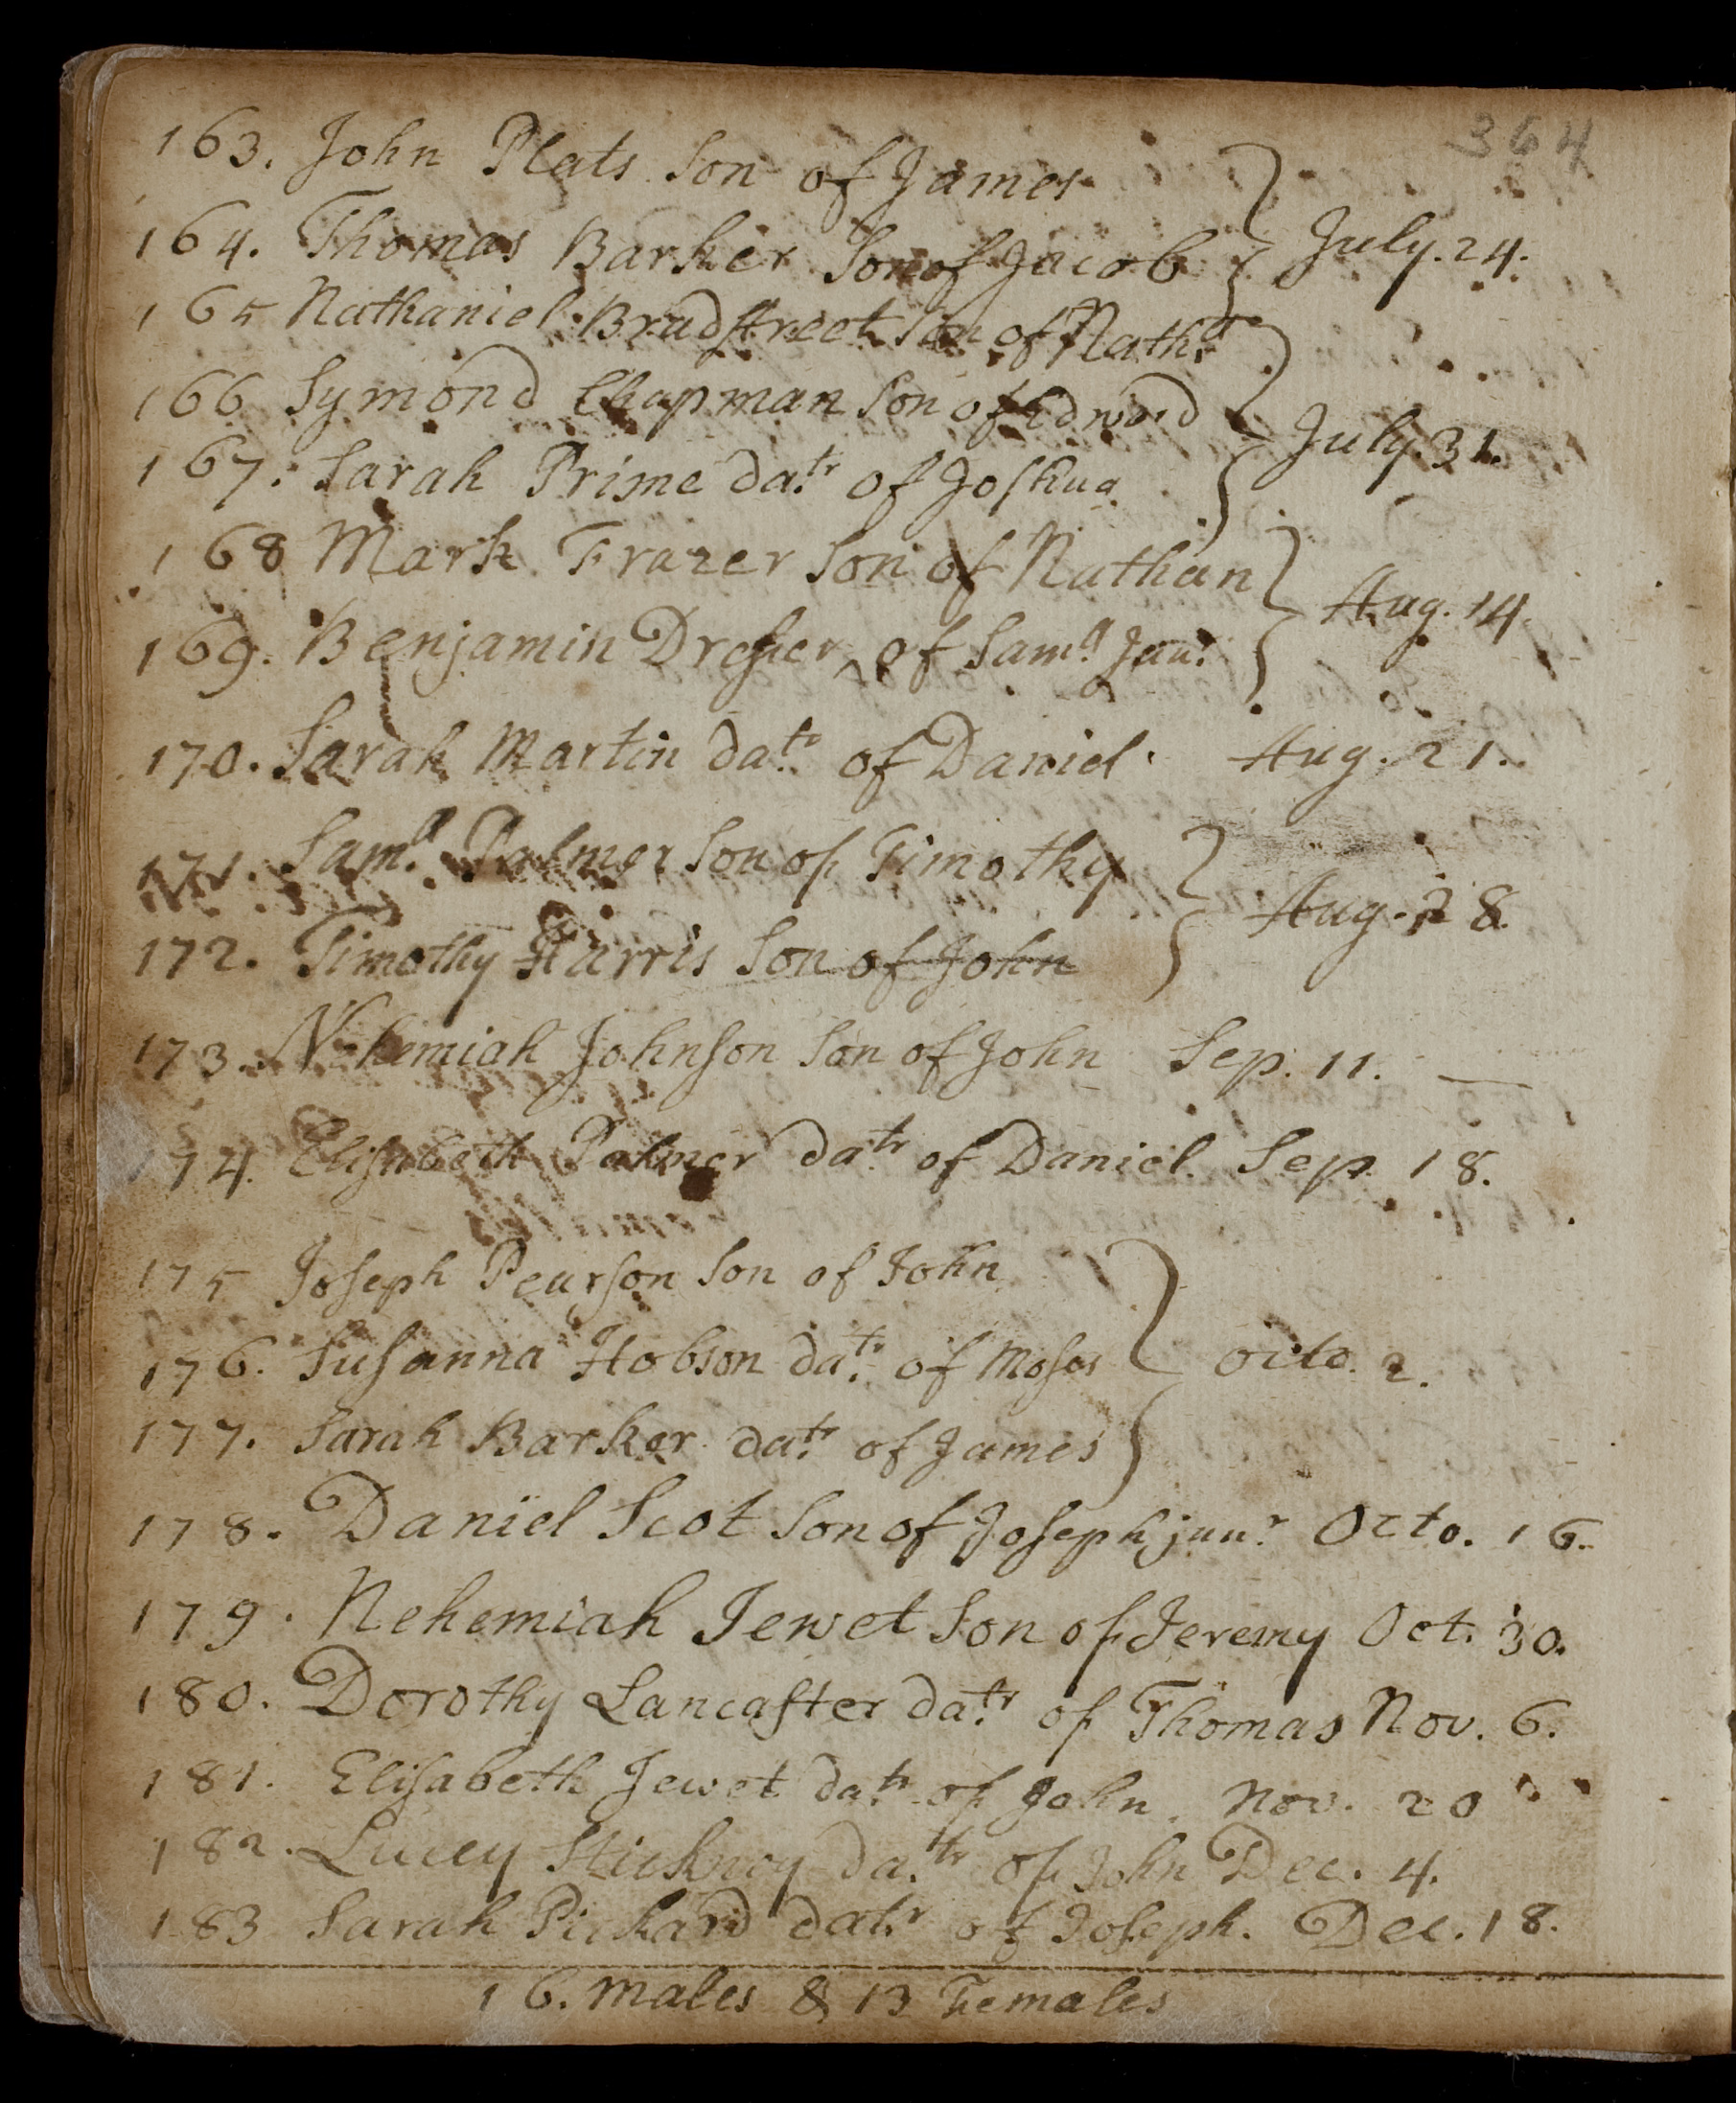 364
163. John Plats Son of James
164. Thomas Barker Son of Jacob } July. 24.
165 Nathaniel Bradstreet Son of Nathll
166 Symond Chapman Son of Edward
167. Sarah Prime datr of Joshua } July. 31.
168 Mark Frazer Son of Nathan
169. Benjamin Dresser ^ of Samll Junr } Aug. 14
170. Sarah Martin datr of Daniel. Aug. 21.
171. Samll Palmer Son of Timothy
172. Timothy Harris Son of John } Aug. 28.
173. Nehemiah Johnson Son of John Sep. 11. —
174. Elisabeth Palmer datr of Daniel. Sep. 18.
175 Joseph Pearson Son of John
176. Susanna Hobson datr of Moses } Octo. 2.
177. Sarah Barker datr of James
178. Daniel Scot Son of Joseph junr Octo. 16.
179. Nehemiah Jewet Son of Jeremy Oct. 30.
180. Dorothy Lancaster datr of Thomas Nov. 6.
181. Elisabeth Jewet datr of John. Nov. 20
182. Lucey Stickney datr of John Dec. 4.
183 Sarah Pickard datr of Joseph. Dec. 18.
16. Males & 13 Females